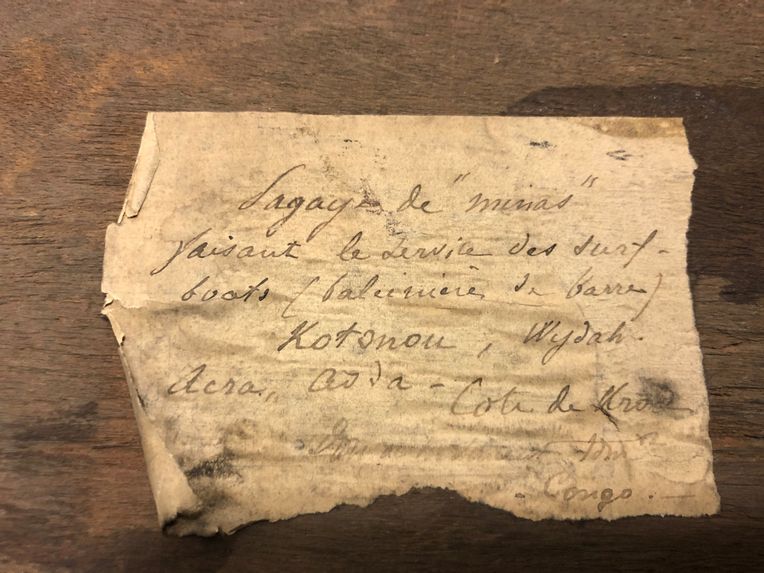 Sagaye de "minas"
faisant le service des surf-
boats (baleinières de barre)
Kotonou, Wydah.
Acra, Adda -
Côte de Kroo
- Congo. -